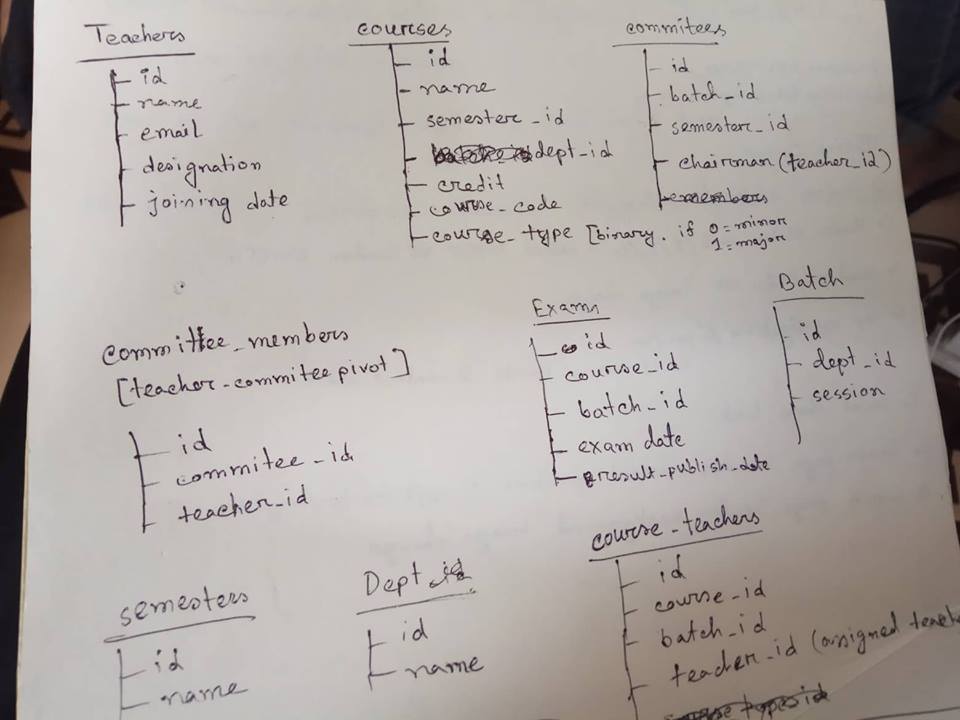 Teachers
id
name
email
designation
joining date
courses
id
name
semester_id
dept_id
credit
course_code
course_type [binary. if 0=minor
1=major
commitees
id
batch_id
semester_id
chairman (teacher_id)
members
committee_members
[teacher-commitee pivot]
id
commitee_id
teacher_id
Exams
id
course_id
batch_id
exam date
result_publish_date
Batch
id
dept_id
session
semesters
id
name
Dept
id
name
course_teachers
id
course_id
batch_id
teacher_id (assigned teach